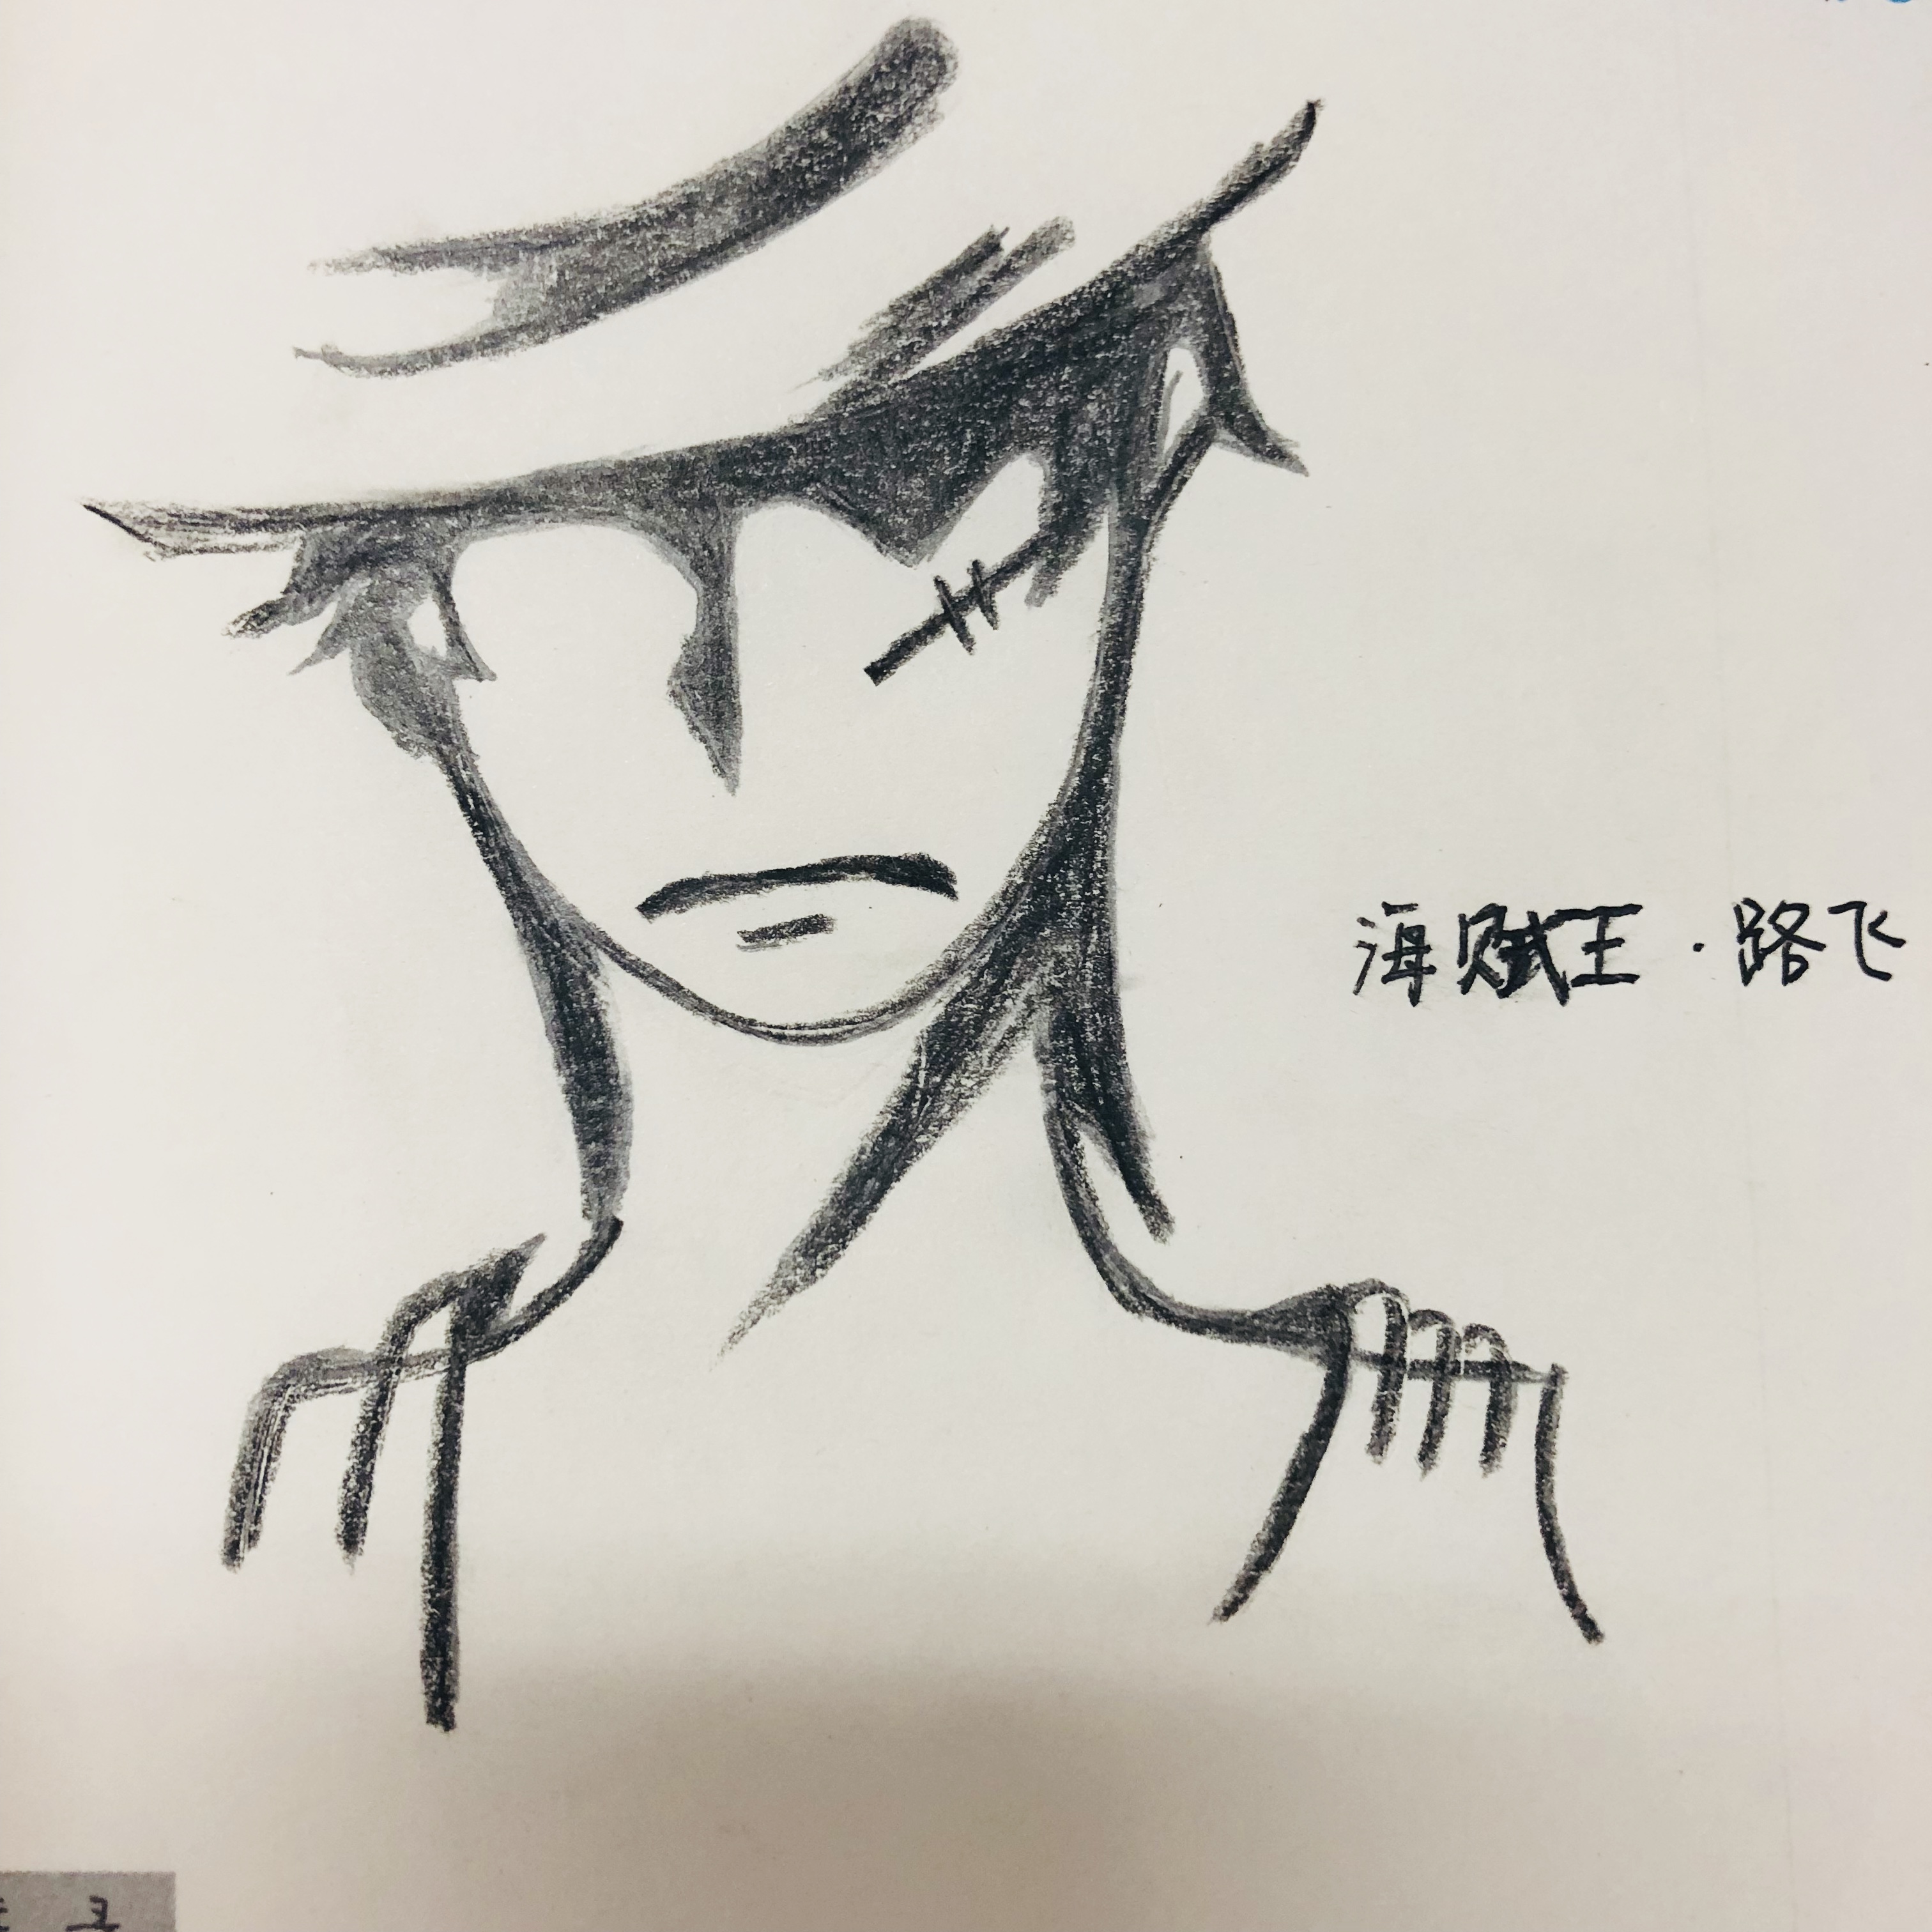 海贼王·路飞